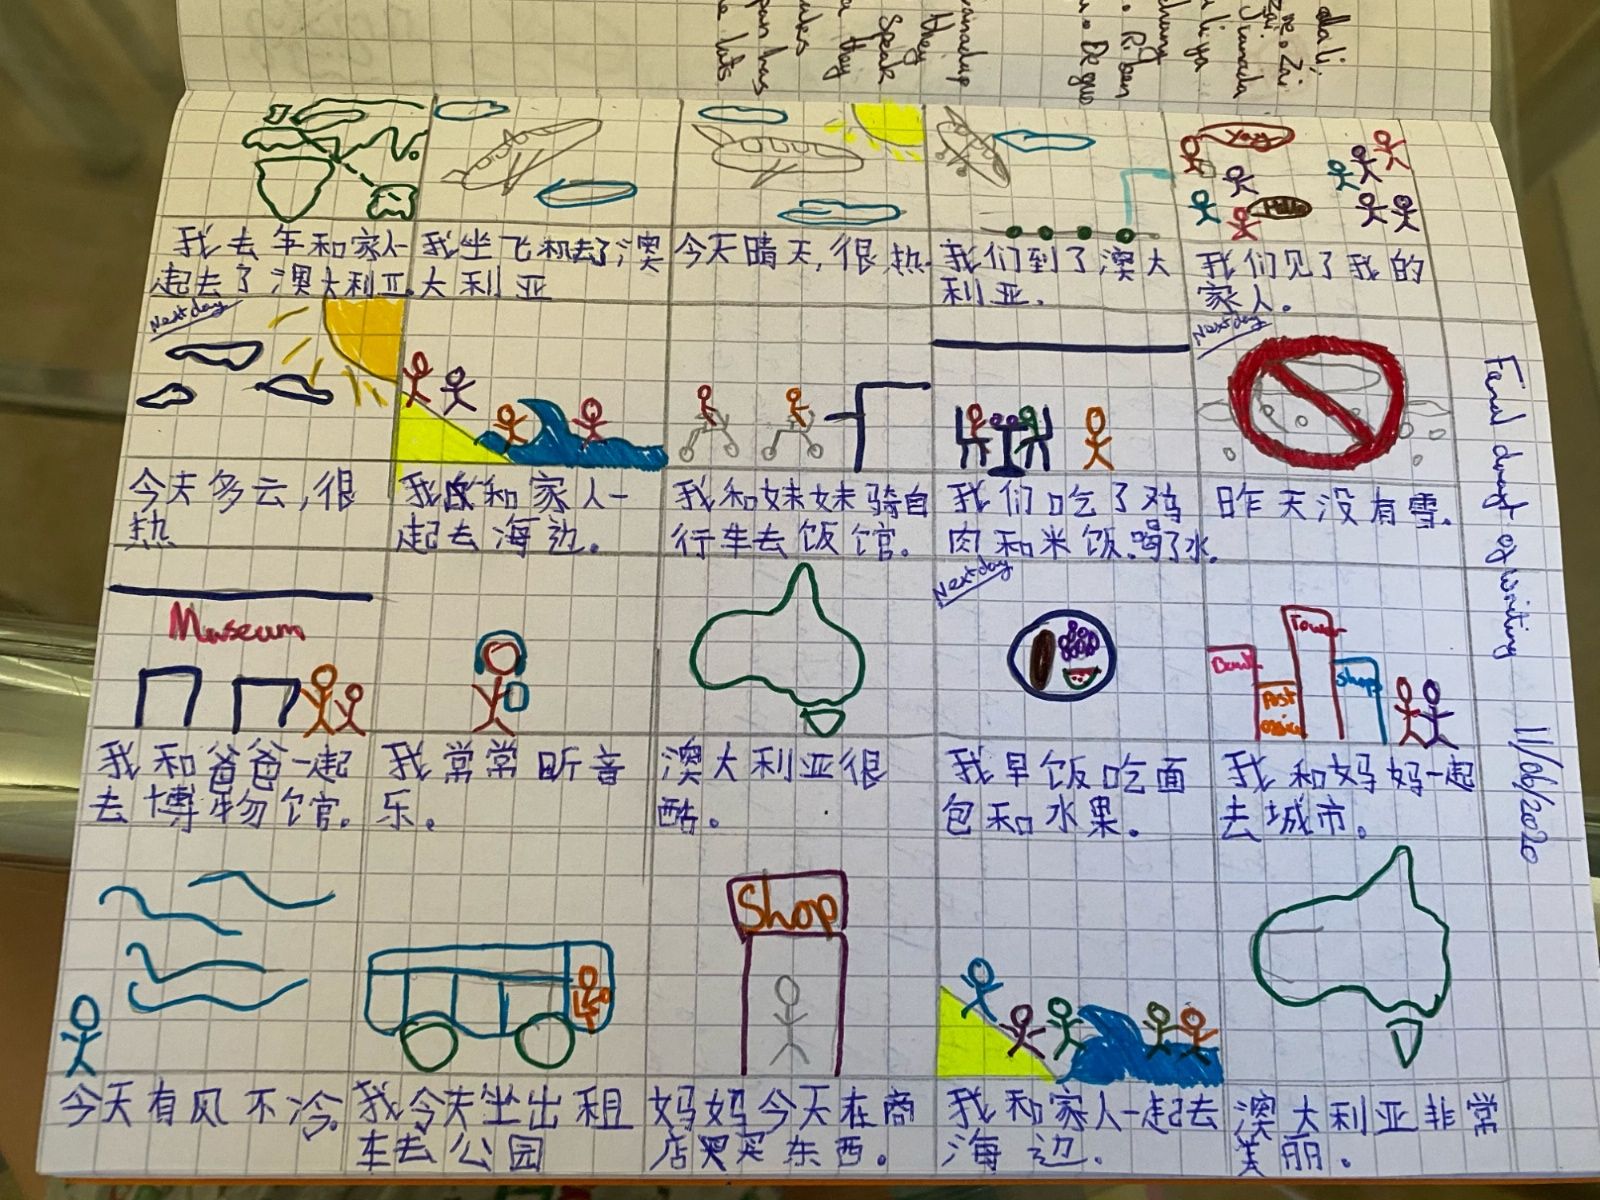 我去年和家人一
起去了澳大利亚.
我坐飞机去了澳
大利亚
今天晴天,很热.
我们到了澳大
利亚.
Yay
我们见了我的
家人.
Next day
今天多云,很
热
我和家人一
起去海边.
我和妹妹骑自
行车去饭馆.
我们吃了鸡
肉和米饭.喝了水.
Next day
昨天没有雪.
Museum
我和爸爸一起
去博物馆.
我常常听音
乐.
澳大利亚很
酷.
Next day
我早饭吃面
包和水果.
Bank
Post
office
Tower
Shop
我和妈妈一起
去城市.
今天有风不冷.
我今天坐出租
车去公园
Shop
妈妈今天在商
店买东西.
我和家人一起去
海边.
澳大利亚非常
美丽.
Final draft of writing 11/06/2020